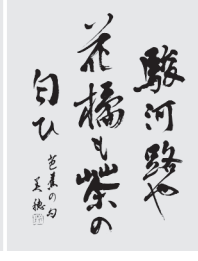 駿河路や
花橘も紫の
匂ひ
芭蕉の句
美穂